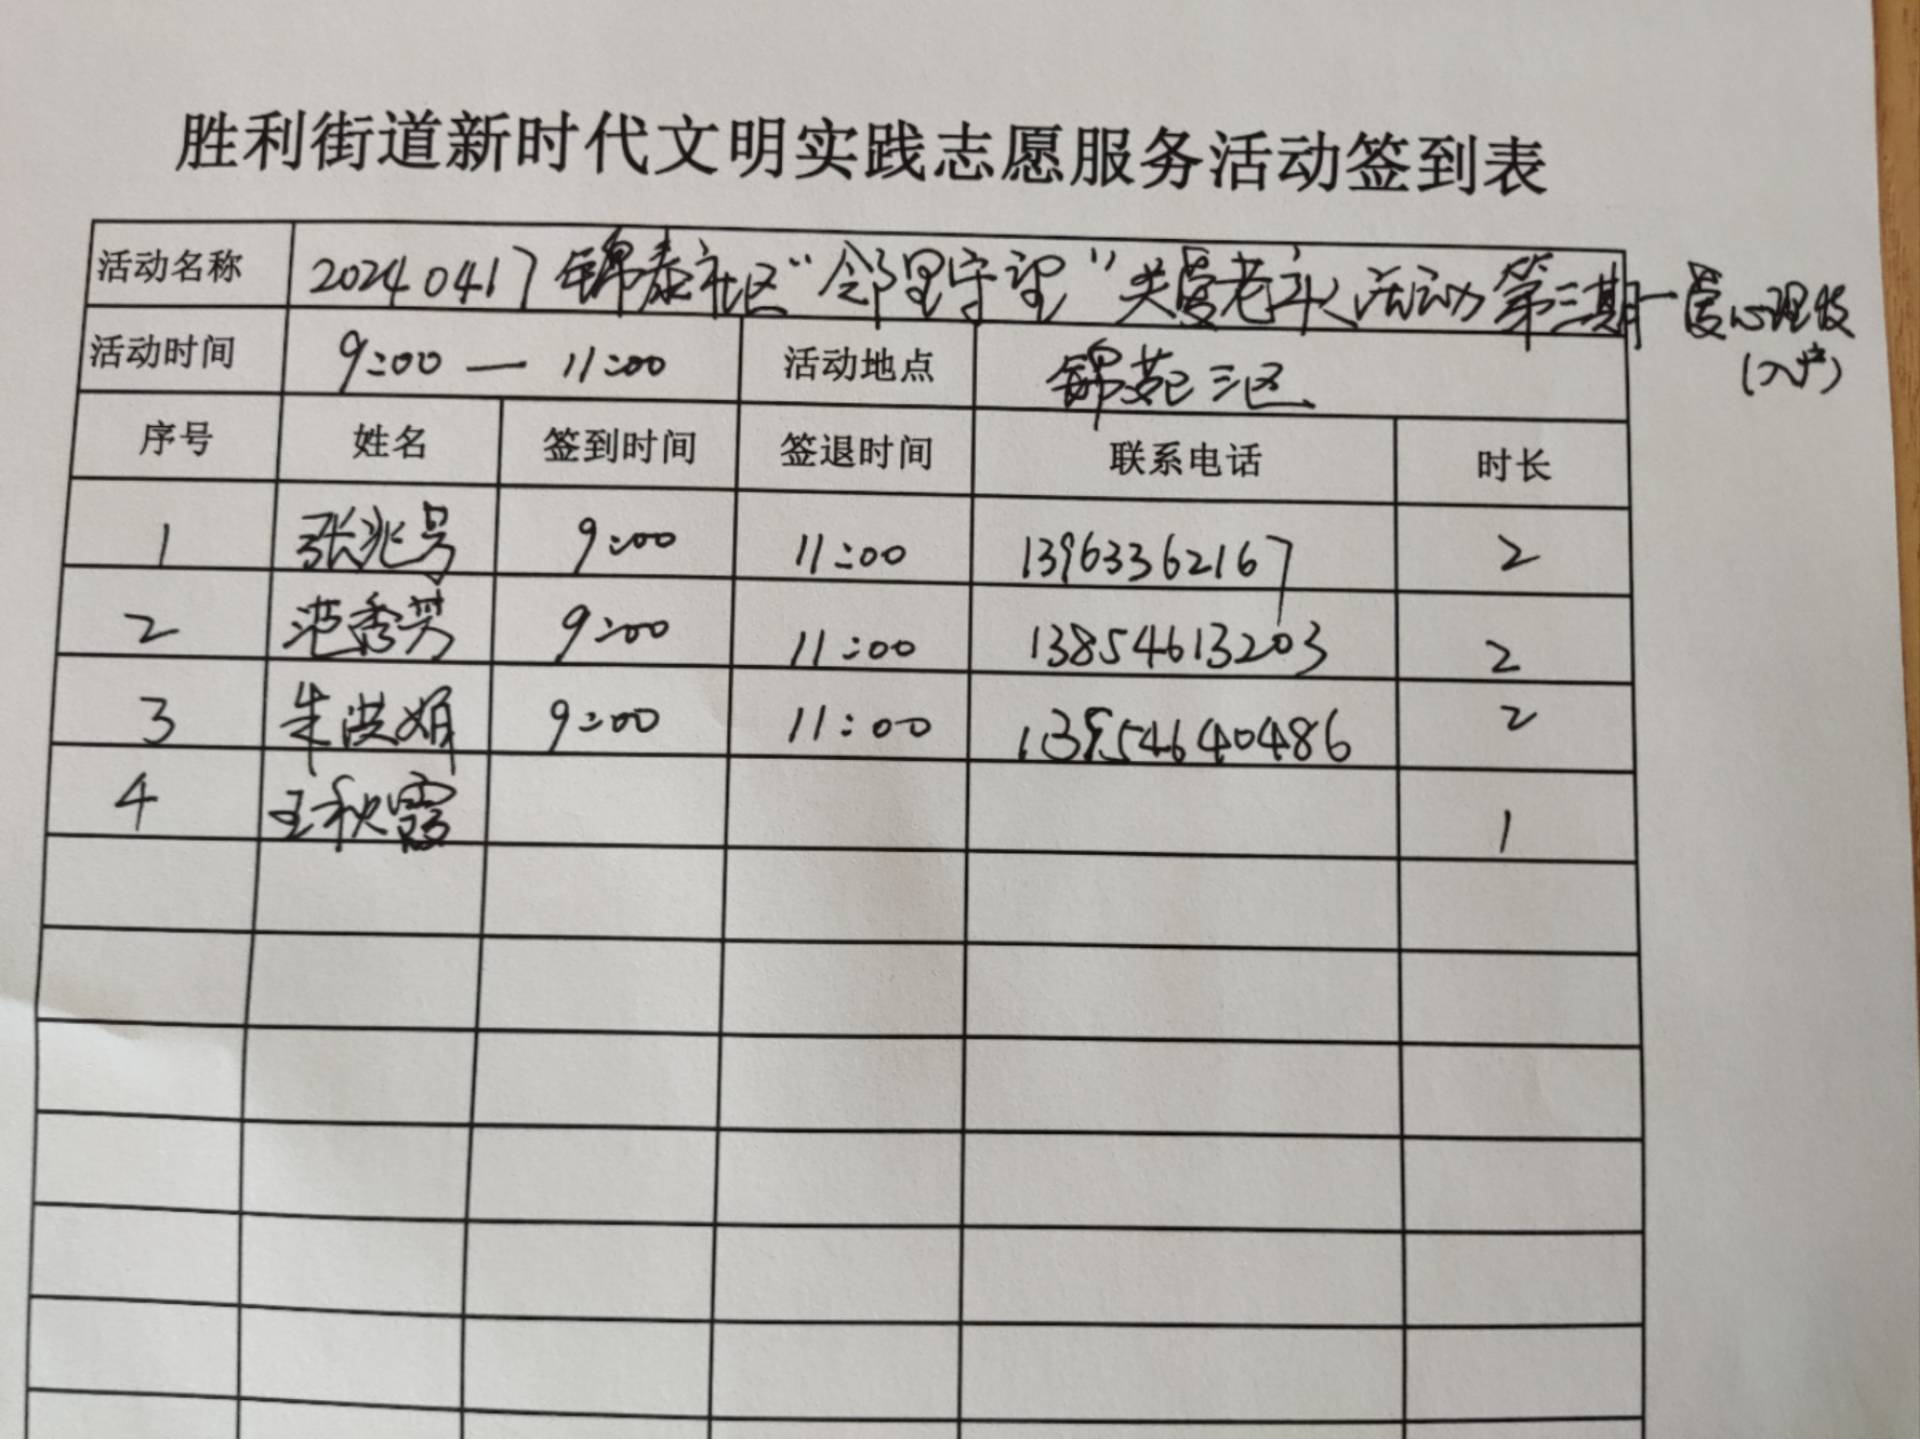 胜利街道新时代文明实践志愿服务活动签到表
活动名称 20240417锦泰社区“邻里守望”关爱老年人活动第三期—爱心理发
(入户)
活动时间 9:00 — 11:00 活动地点 锦苑三区
序号 姓名 签到时间 签退时间 联系电话 时长
1 张兆号 9:00 11:00 13963362167 2
2 范秀芳 9:00 11:00 13854613203 2
3 朱洪娟 9:00 11:00 13954640486 2
4 王秋霞 1